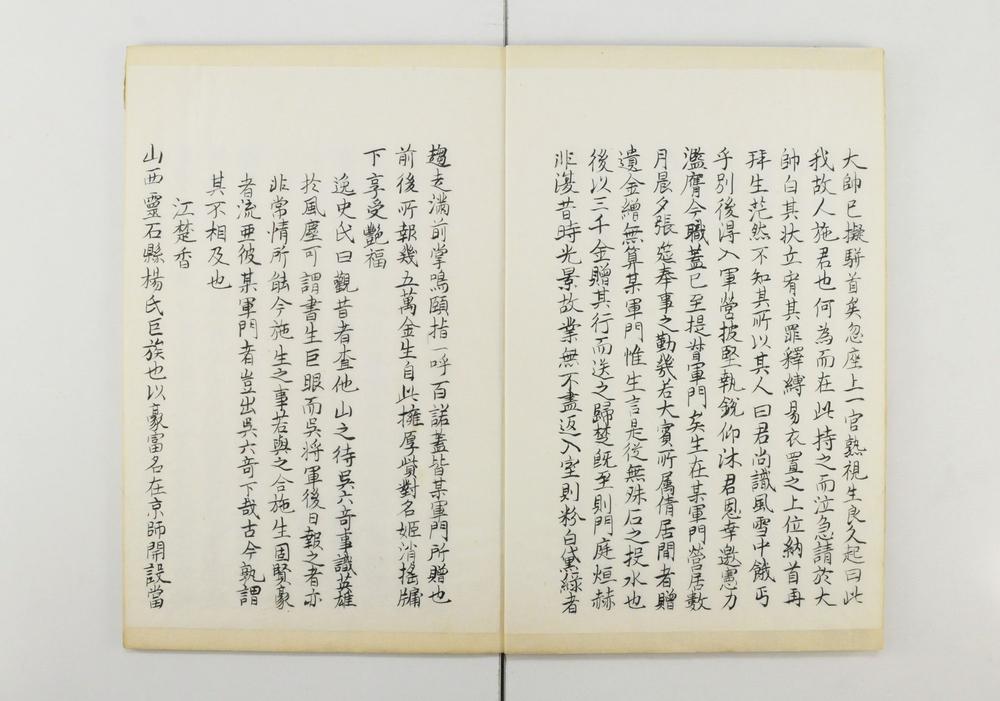 大帥已擬駢首矣忽座上一官熟視生良久起曰此
我故人施君也何為而在此持之而泣急請於大
帥白其狀立宥其罪釋縛易衣置之上位納首再
拜生茫然不知其所以其人曰君尚識風雪中餓丐
乎別後得入軍營披堅執銳仰沐君恩幸邀憲力
濫膺今職蓋已至提督軍門矣生在某軍門營居數
月晨夕張筵奉事之勤幾若大賓所屬倩居間者贈
遺金繒無算某軍門惟生言是從無殊石之投水也
後以三千金贈其行而送之歸楚既至則門庭烜赫
非復昔時光景故業無不盡返入室則粉白黛綠者
趨走滿前掌鳴頤指一呼百諾蓋皆某軍門所贈也
前後所報幾五萬金生自此擁厚貲對名姬消搖牖
下享受艷福
逸史氏曰觀昔者查他山之待吳六奇事識英雄
於風塵可謂書生巨眼而吳將軍後日報之者亦
非常情所能今施生之事若與之合施生固賢豪
者流亞彼某軍門者豈出吳六奇下哉古今孰謂
其不相及也
江楚香
山西靈石縣楊氏巨族也以豪富名在京師開設當